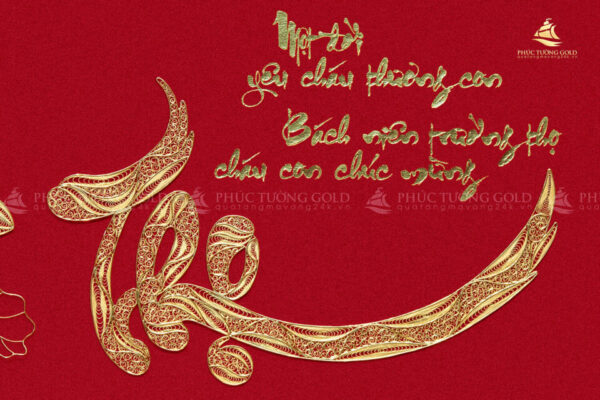 Một đời
yêu cháu thương con
Bách niên trường thọ
cháu con chúc mừng
Thọ
PHÚC TƯỜNG GOLD
quatangmavang24k.vn
PHÚC TƯỜNG GOLD
quatangmavang24k.vn
PHÚC TƯỜNG GOLD
quatangmavang24k.vn